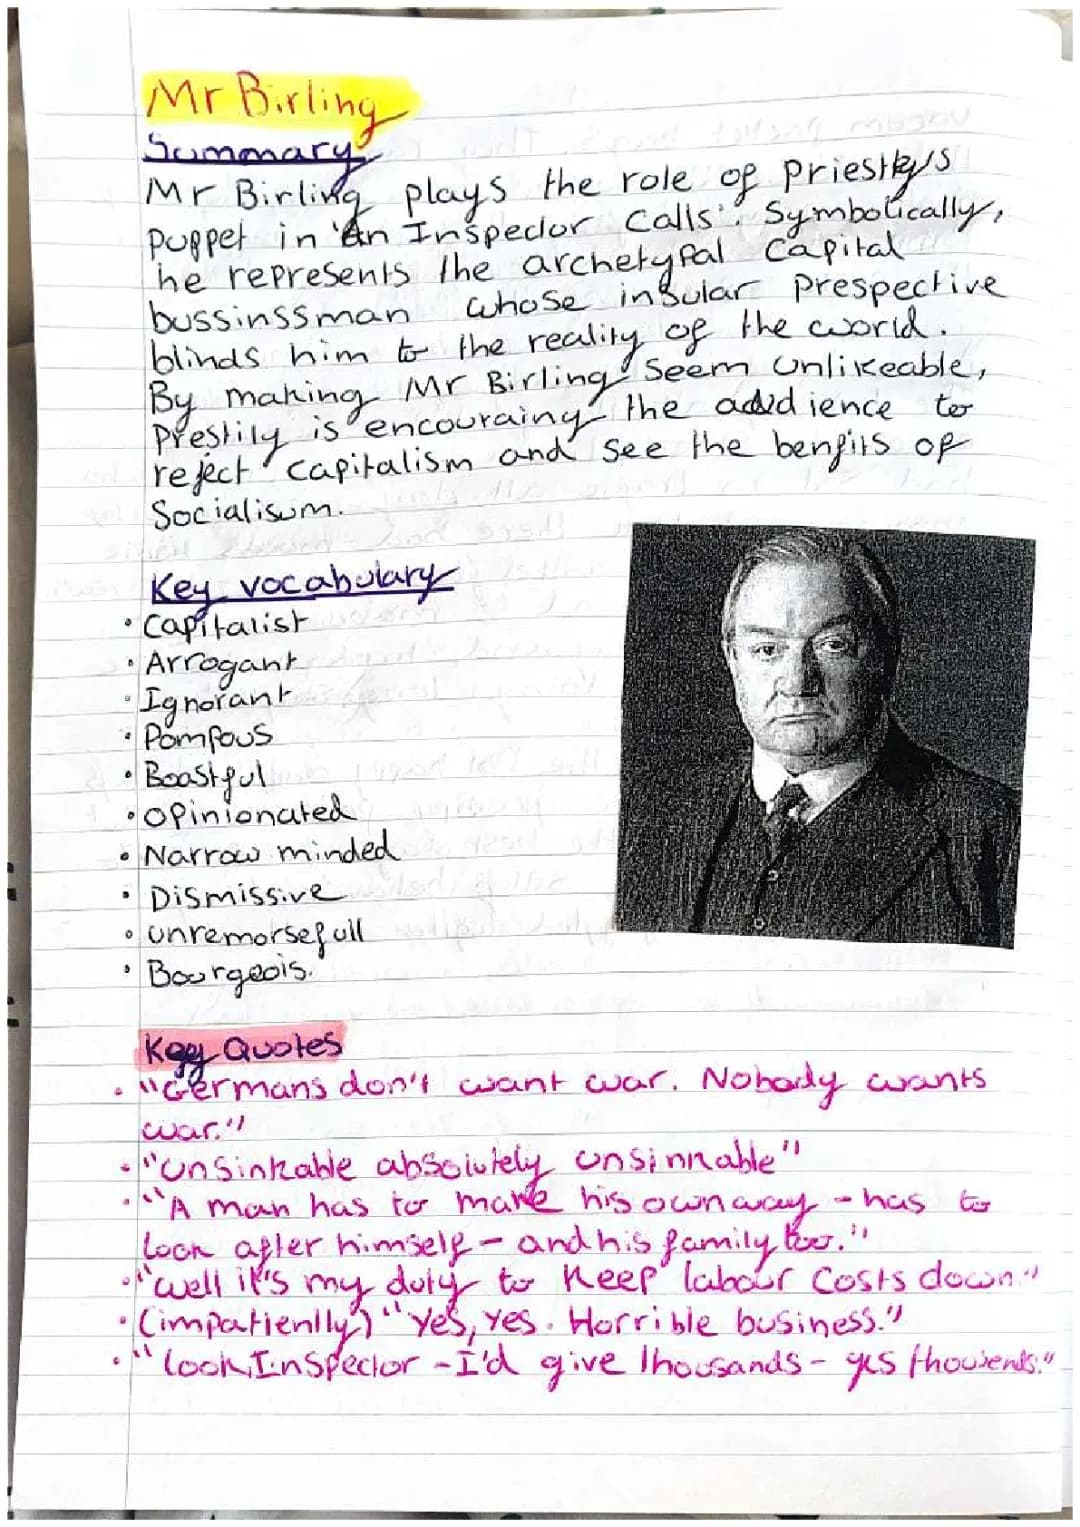 Mr Birling
Summary
Mr Birling plays the role of Priestkys
puppet in 'An Inspector Calls'. Symbolically,
he represents the archetypal Capital
bussinssman whose insular Prespective
blinds him to the reality of the world.
By making Mr Birling Seem Unlikeable,
Prestily is encourainy the audience to
reject Capitalism and see the benfits of
Socialisum.
Key vocabulary
• Capitalist
• Arrogant
• Ignorant
• Pompous
• Boastful
• Opinionated
• Narrow minded
• Dismissive
• unremorsefull
• Bourgeois.
Key Quotes
• "Germans don't want war. Nobody wants
war."
• "Unsinkable absolutely unsinkable"
• "A man has to make his own way - has to
look after himself - and his family too."
• "well it's my duty to Keep labour Costs down."
• (impatienlly) "Yes, yes. Horrible business."
• "look Inspector - I'd give thousands - yes thousends."